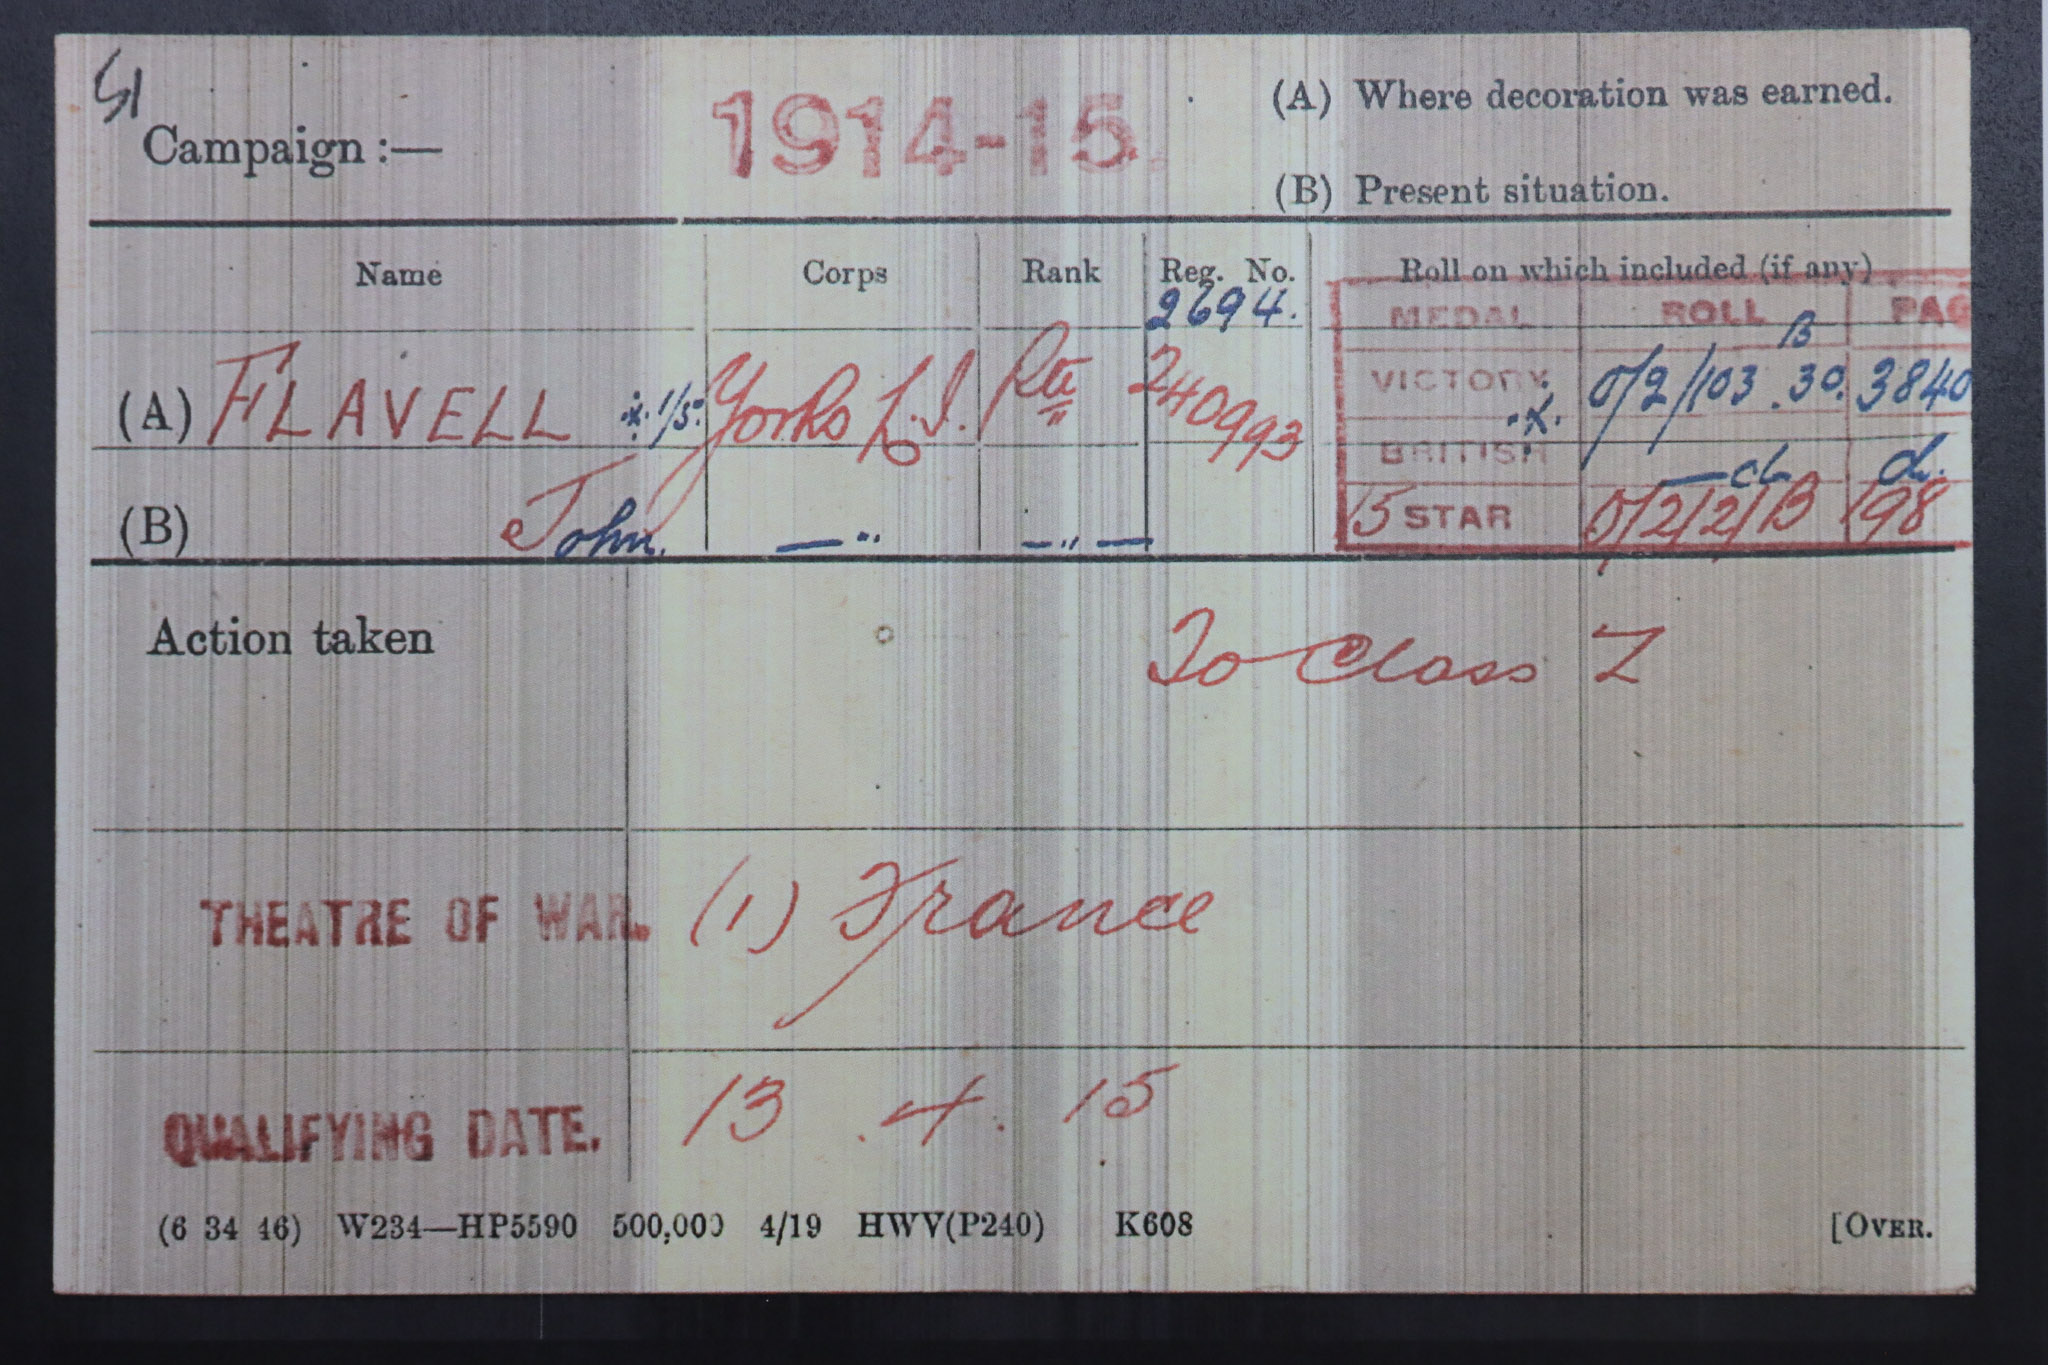 51
Campaign :— 1914-15. (A) Where decoration was earned.
(B) Present situation.
Name Corps Rank Reg. No. Roll on which included (if any)
2694. MEDAL ROLL PAG
(A) FLAVELL 1/5. Yorks L.I. Pte 240993 VICTORY O/2/103.B30. 3840
BRITISH —do do.
(B) John. — " — " — 15 STAR O/2/2/B 198
Action taken To Class Z
THEATRE OF WAR. (1) France
QUALIFYING DATE. 13.4.15
(6 34 46) W234—HP5590 500,000 4/19 HWV(P240) K608 [OVER.